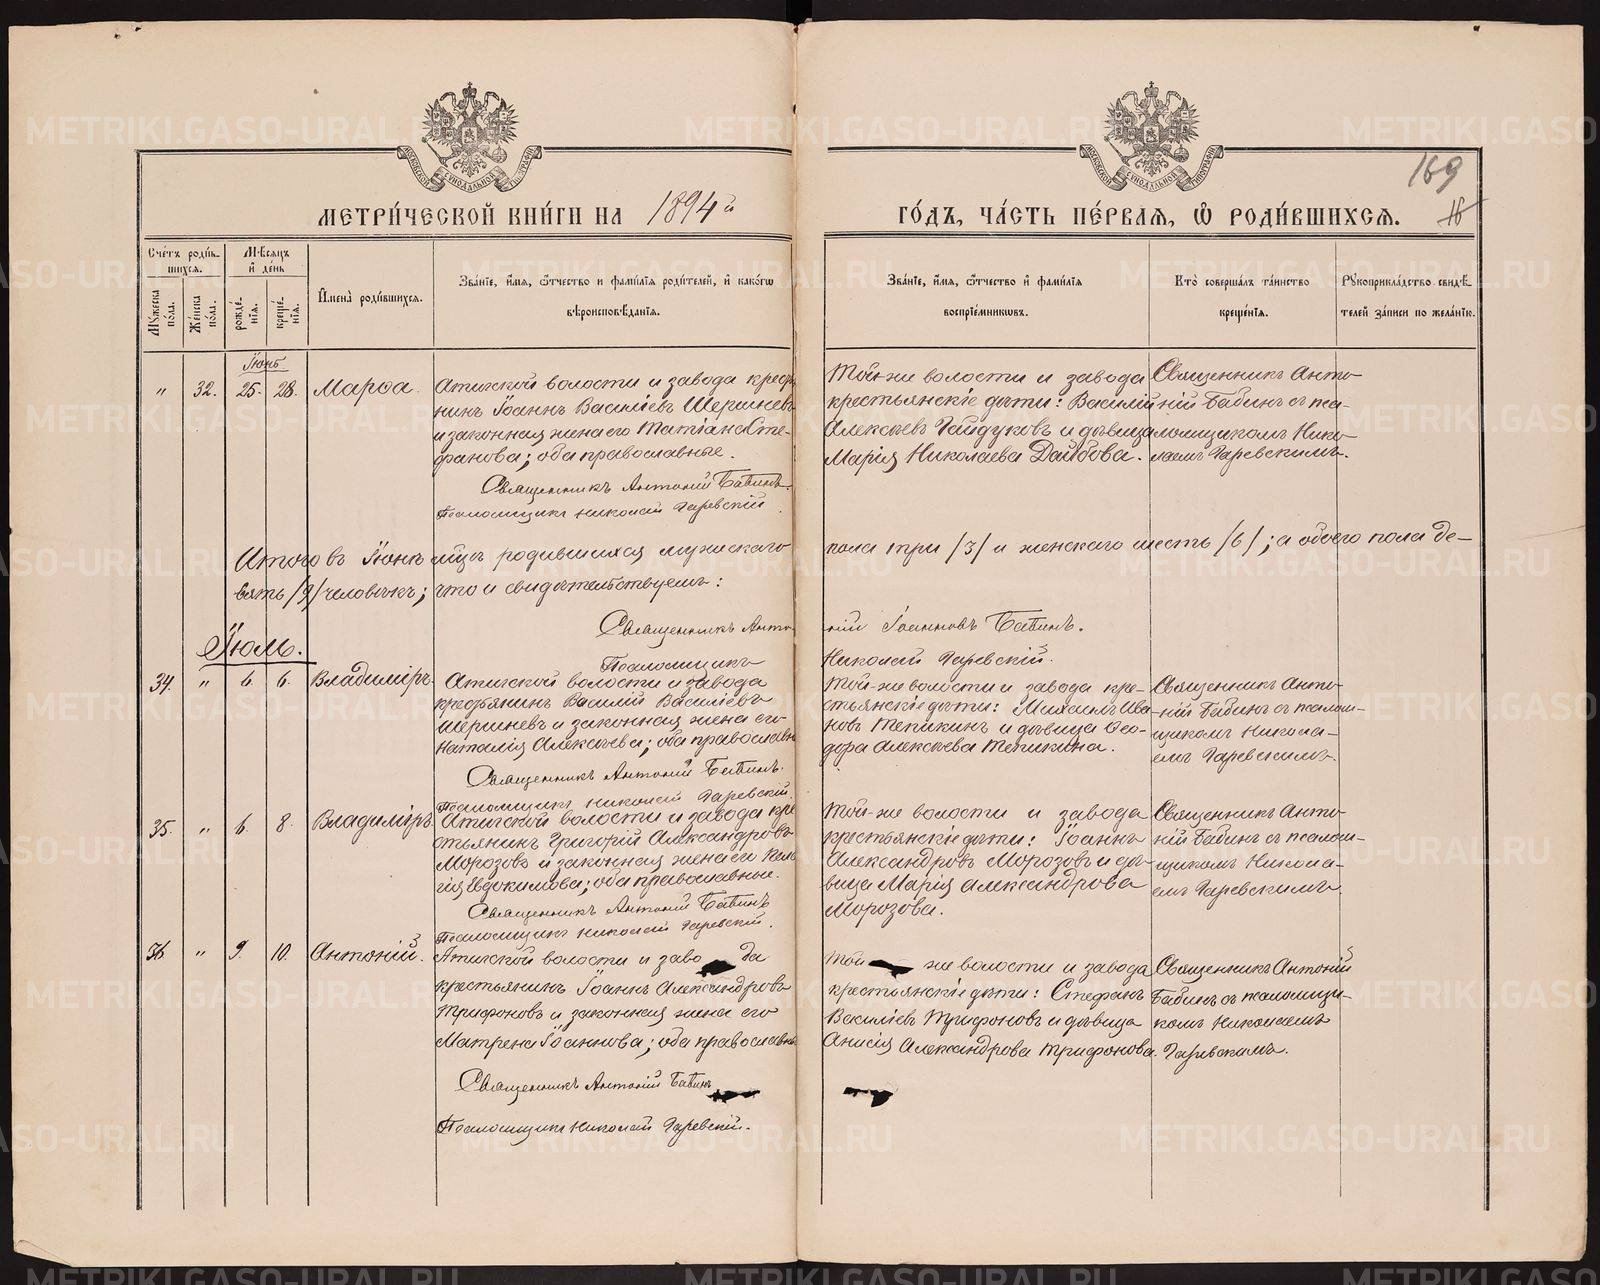 МЕТРИ́ЧЕСКОЙ КНИ́ГИ НА 1894й
ГО́ДЪ, ЧА́СТЬ ПЕ́РВАЯ, Ѡ҆ РОДИ́ВШИХСЯ.
169
Сче́тъ роди́в-
шихся.
Му́жеска по́ла.
Же́нска по́ла.
Мѣ́сяцъ и҆ де́нь
рожде́нїя.
креще́нїя.
И҆мена̀ роди́вшихся.
Зва́нїе, и҆́мя, ѻ҆́тчество и фами́лїя роди́телей, и҆ како́гѡ
вѣроисповѣ́данїя.
Зва́нїе, и҆́мя, ѻ҆́тчество и҆ фами́лїя
воспрїе́мникѡвъ.
Кто̀ соверша́лъ та́инство
креще́нїя.
Рꙋкоприкла́дство свидѣ́-
телей за́писи по жела́нїю.
Іюнь
" 32. 25. 28. Марѳа.
Атигской волости и завода кресть
нинъ Іоаннъ Василіевъ Шершневъ
и законная жена его Татіана Сте-
фанова; оба православные.
Священникъ Антоній Бабинъ.
Псаломщикъ Николай Гаревскій.
Той-же волости и завода
крестьянскіе дѣти: Василій
Алексѣевъ Гайдуковъ и дѣвица
Марія Николаева
Священникъ Анто-
ній Бабинъ съ пса-
ломщикомъ Нико-
лаемъ Гаревскимъ.
Итого въ Іюнѣ мцѣ родившихся мужскаго пола три /3/ и женскаго шесть /6/; а обоего пола де-
вять /9/ человѣкъ; что и свидѣтельствуемъ:
Священникъ Антоній Іоанновъ Бабинъ.
Псаломщикъ Николай Гаревскій.
Іюль.
34. " 6. 6. Владиміръ.
Атигской волости и завода
крестьянинъ Василій Василіевъ
Шершневъ и законная жена его
Наталія Алексѣева; оба православн
Священникъ Антоній Бабинъ.
Псаломщикъ Николай Гаревскій.
Той-же волости и завода кре-
стьянскіе дѣти: Михаилъ Ива-
новъ Тепикинъ и дѣвица Ѳео-
дора Алексѣева Тепикина.
Священникъ Анто-
ній Бабинъ съ псалом-
щикомъ Никола-
емъ Гаревскимъ.
35. " 6. 8. Владиміръ.
Атигской волости и завода кре
стьянинъ Григорій Александровъ
Морозовъ и законная жена его
Евдокимова; оба православные.
Священникъ Антоній Бабинъ
Псаломщикъ Николай Гаревскій.
Той-же волости и завода
крестьянскіе дѣти: Іоаннъ
Александровъ Морозовъ и дѣ-
вица Марія Александрова
Морозова.
Священникъ Анто-
ній Бабинъ съ псалом-
щикомъ Никола-
емъ Гаревскимъ.
36. " 9. 10. Антоній.
Атигской волости и заво да
крестьянинъ Іоаннъ Александровъ
Трифоновъ и законная жена его
Матрена Іоаннова; оба православн
Священникъ Антоній Бабинъ
Псаломщикъ Николай Гаревскій.
Той же волости и завода
крестьянскіе дѣти: Стефанъ
Василіевъ Трифоновъ и дѣвица
Анисія Александрова Трифонова.
Священникъ Антоній
Бабинъ съ псаломщи-
комъ Николаемъ
Гаревскимъ.
METRIKI.GASO-URAL.RU